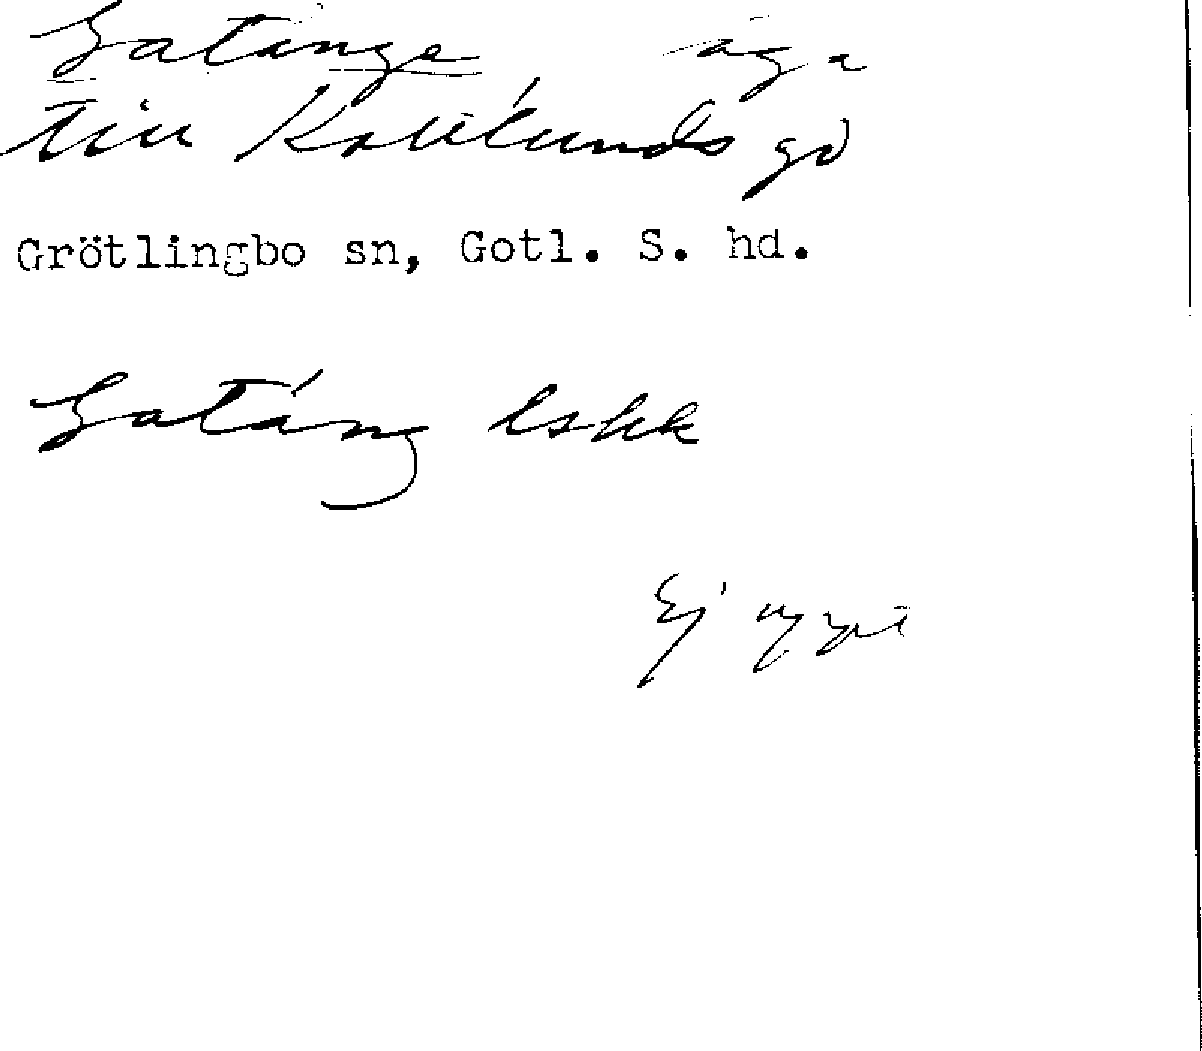 Gatänge äga
till Kattlunds gd
Grötlingbo sn, Gotl. S. hd.
Gatáng lskk
Ej uppt